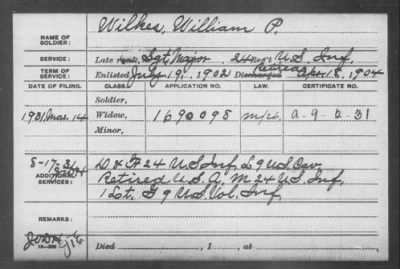 NAME OF SOLDIER: Wilkes, William P.
SERVICE: Late Sgt, Major 24 Reg't U.S. Inf.
TERM OF SERVICE: Enlisted July 19, 1902 Discharged retired Apr 18, 1904
DATE OF FILING. CLASS. APPLICATION NO. LAW. CERTIFICATE NO.
Soldier,
1931 Mar. 14 Widow, 1690098 A-9-2-31
Minor,
ADDITIONAL SERVICES: D & F 24 U.S. Inf, L 9 U.S. Cav.
Retired U.S.A, M 24 U.S. Inf,
1 Lt. G 9 U.S. Vol. Inf.
REMARKS:
Died , 1 at